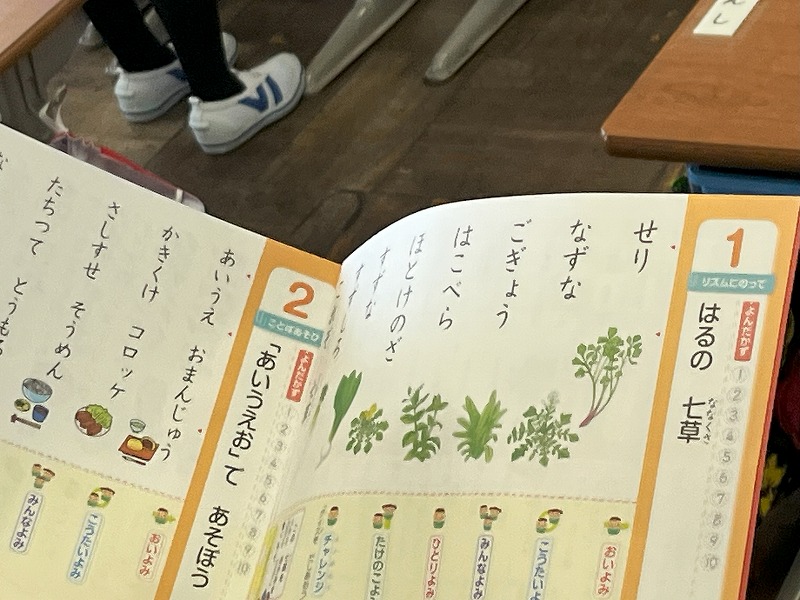 んし
1
リズムにのって
はるの 七草
ななくさ
よんだかず
1 2 3 4 5 6 7 8 9 10
せり
なずな
ごぎょう
はこべら
ほとけのざ
すずな
おいよみ
こうたいよ
みんなよみ
ひとりよみ
たけのこよ
チャレンジ
2
ことばあそび
「あいうえお」で あそぼう
よんだかず
1 2 3 4 5 6 7 8 9 10
あいうえ おまんじゅう
かきくけ コロッケ
さしすせ そうめん
たちつて とうもろ
な
おいよみ
こうたいよみ
みんなよみ